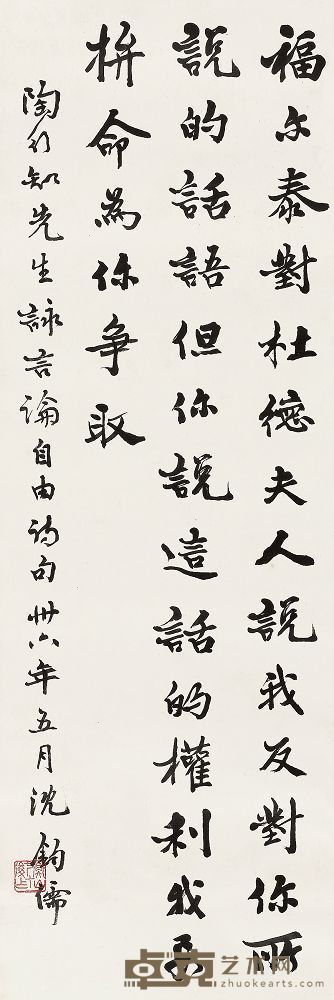 福尔泰對杜德夫人說我反對你所
說的話語但你說這話的權利我要
拚命為你爭取
陶行知先生詠言論自由詩句卅六年五月沈鈞儒
卓克艺术网
www.zhuokearts.com